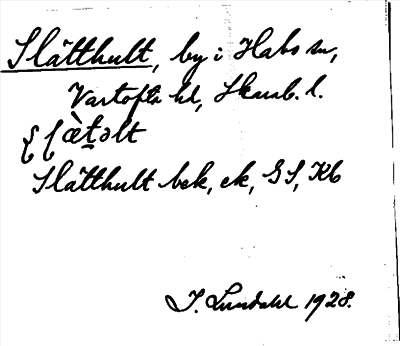 Slätthult, by i Habo sn,
Vartofta hd, Skarab. l.
Slätthult bek, ek, GS, Kb
I. Lundahl 1928.